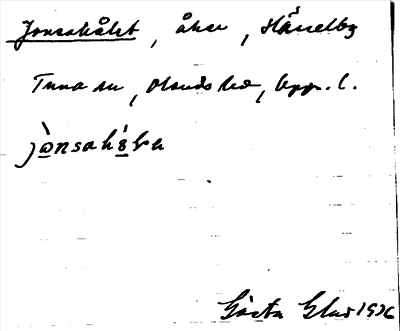 Jonsahålet, åker, Hässelby
Tuna sn, Olands hd, Upps. l.
jònsahóla
Gösta Glas 1926